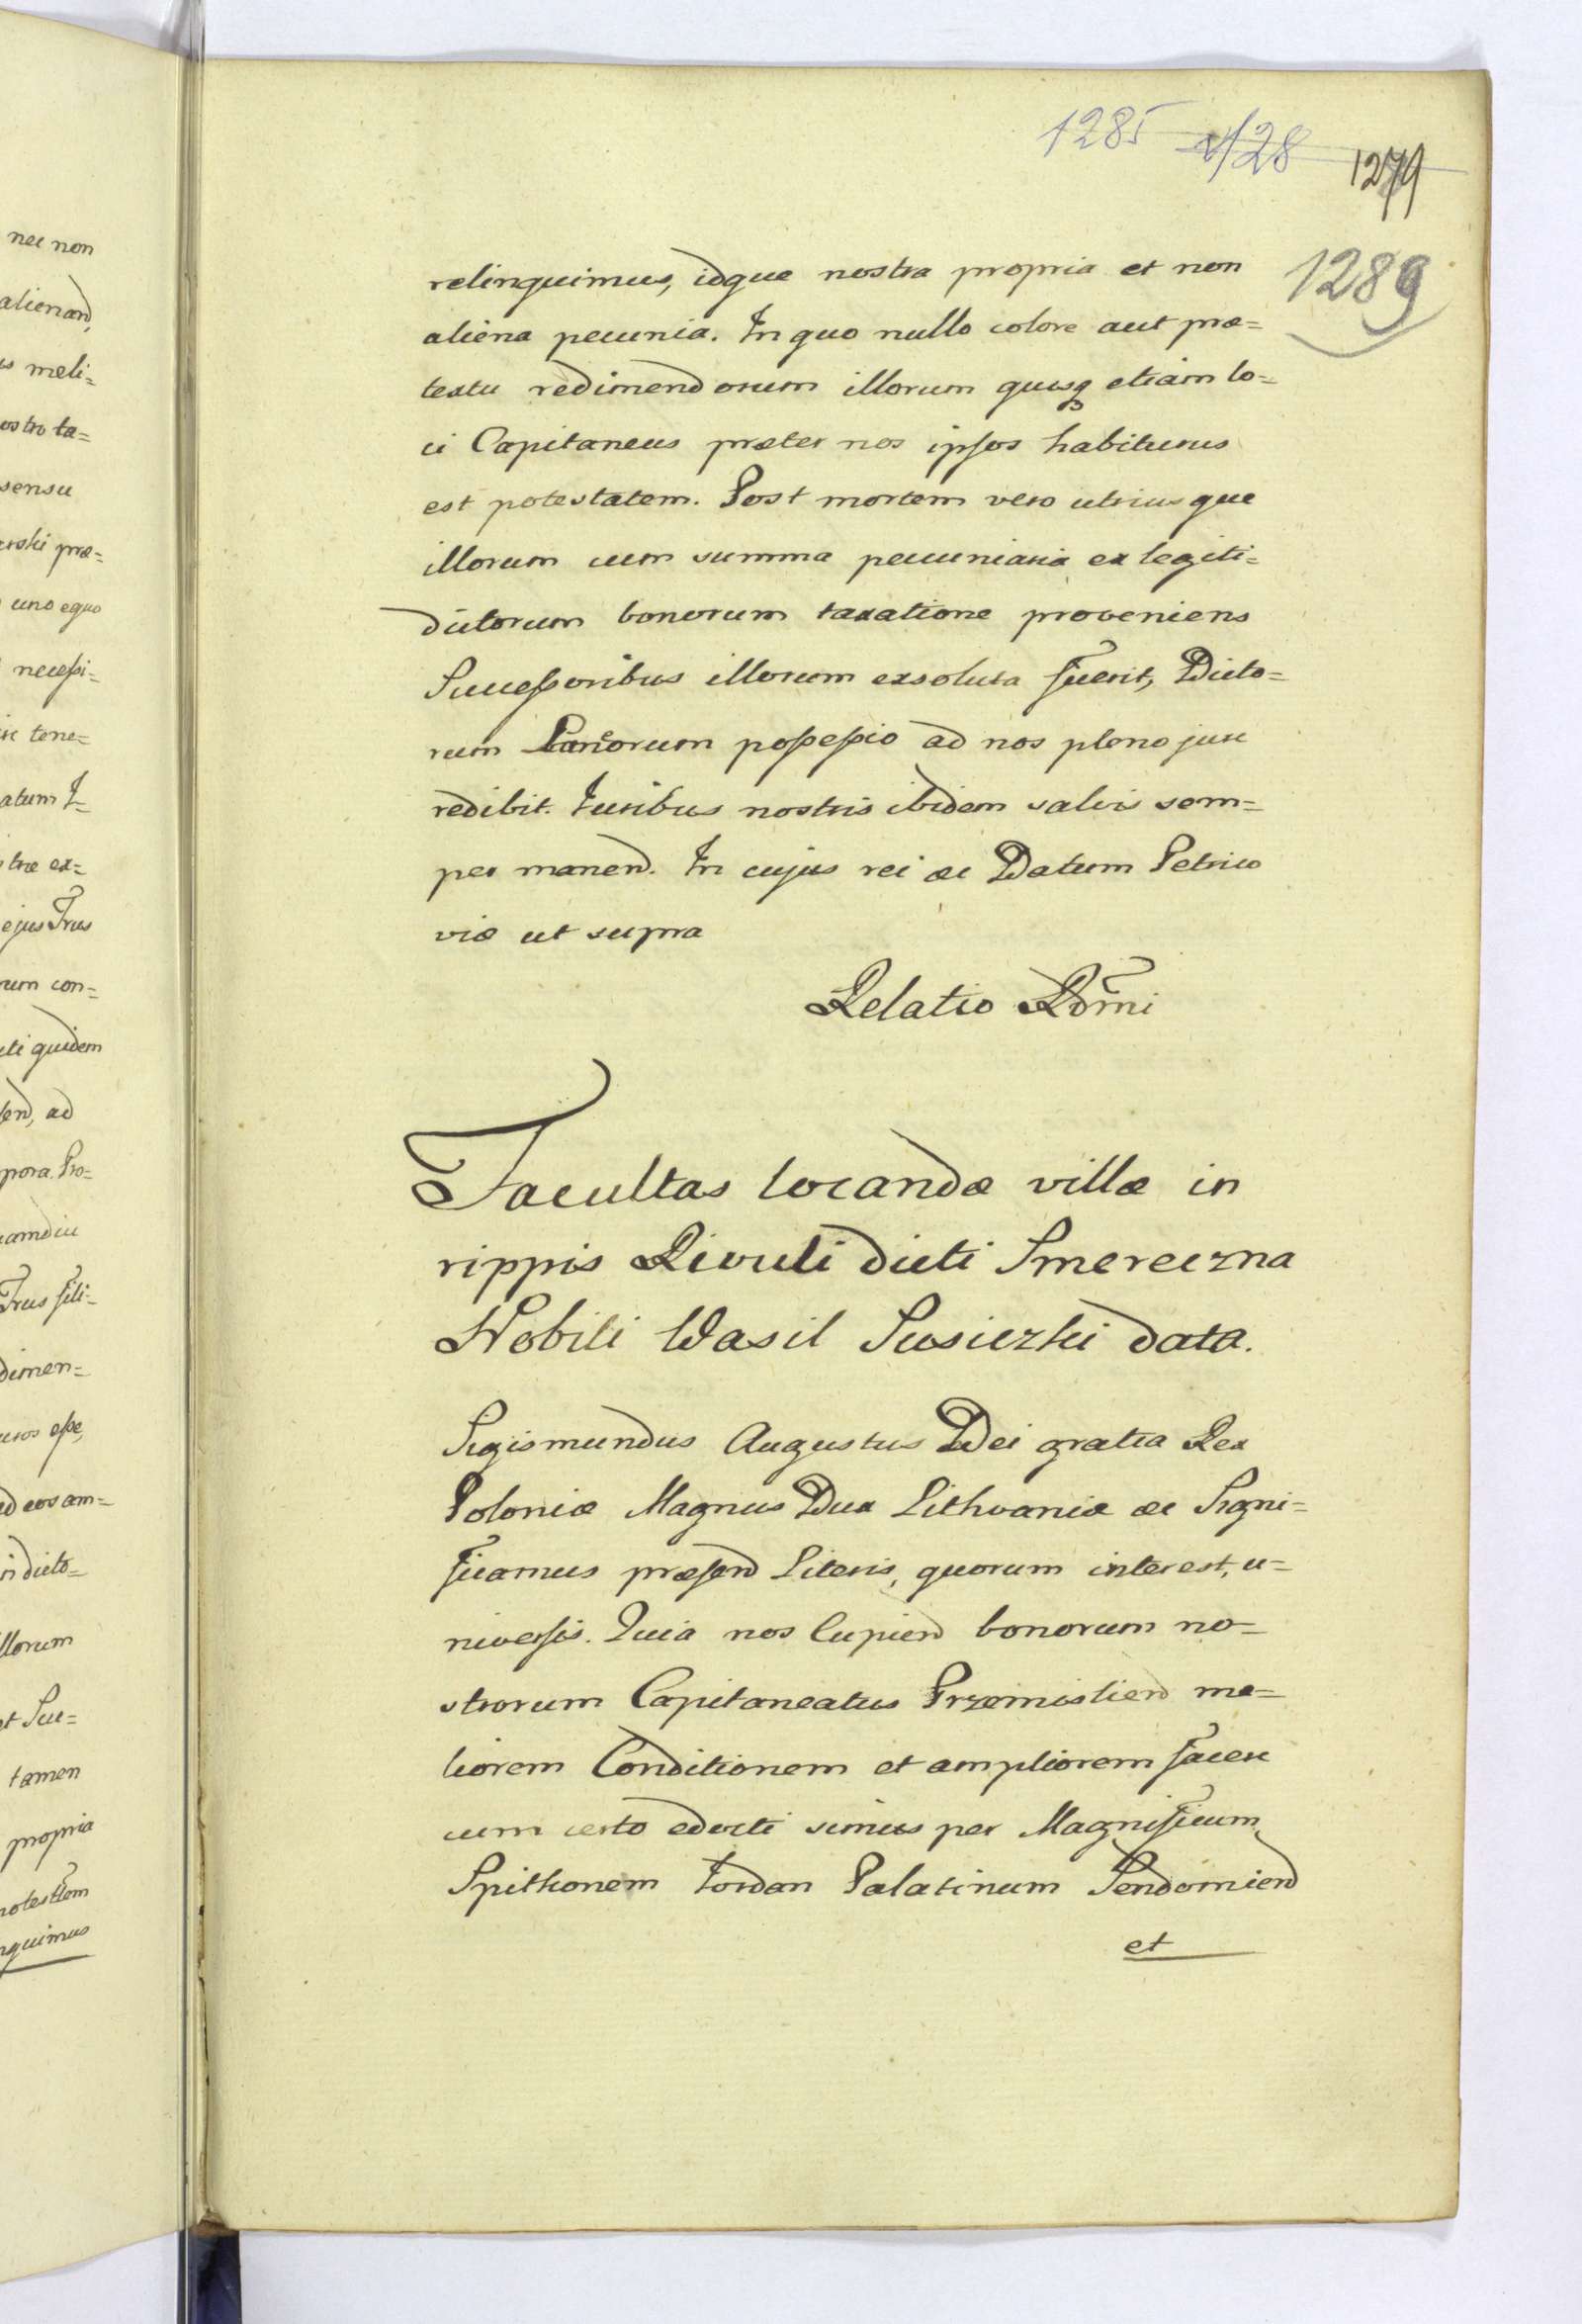 1285 1128 1279
1289
relinquimus, idque nostra propria et non
aliena pecunia. In quo nullo colore aut præ=
textu redimendorum illorum quisq etiam lo=
ci Capitaneus præter nos ipsos habiturus
est potestatem. Post mortem vero utriusque
illorum cum summa pecuniaria ex legiti=
dictorum bonorum taxatione proveniens
Successoribus illorum exsoluta fuerit, Dicto=
rum possessio ad nos pleno jure
redibit. Juribus nostris ibidem salvis sem=
per manend. In cujus rei ac Datum Petrico
viæ ut supra
Relatio Rdmi
Facultas locandæ villæ in
rippis Rivuli dicti Smereczna
Nobili Wasil Susiczki data.
Sigismundus Augustus Dei gratia Rex
Poloniæ Magnus Dux Lithvaniæ ac Signi=
ficamus præsend Literis, quorum interest, u=
niversis. Quia nos Cupiend bonorum no=
strorum Capitaneatus Przemisliend me=
liorem Conditionem et ampliorem facere
cum certo edocti simus per Magnificum
Spithonem Jordan Palatinum Sendomiend
et
nec non
alienand,
is meli=
ostro ta=
sensu
erski præ=
uno equo
necessi=
tene=
atum I=
træ ex=
ejus Frus
rum con=
cti quidem
send, ad
pora. Pro=
uamdiu
Frus fili=
dimen=
uros esse,
ad eos am=
n dicto=
llorum
et Suc=
tamen
propria
potestem
nquimus